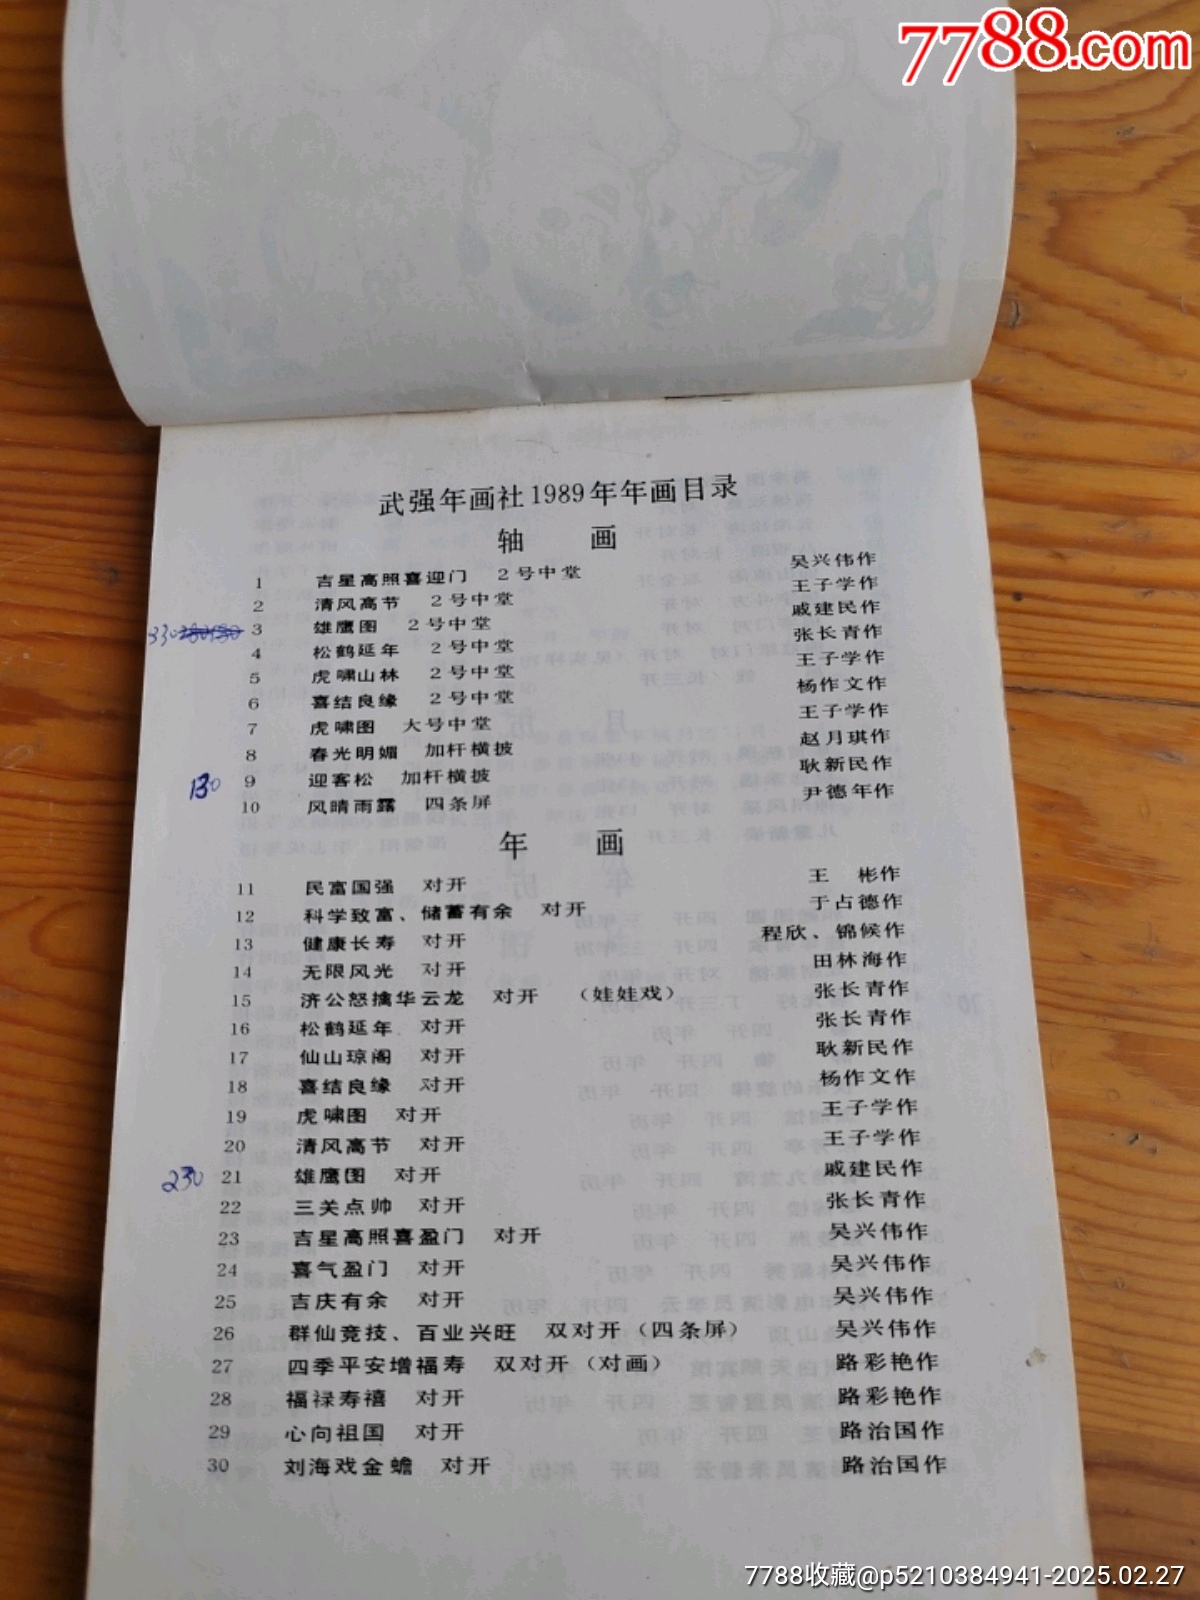 7788.com
武强年画社1989年年画目录
轴 画
1 吉星高照喜迎门 2号中堂 吴兴伟作
2 清风高节 2号中堂 王子学作
330 3 雄鹰图 2号中堂 戚建民作
4 松鹤延年 2号中堂 张长青作
5 虎啸山林 2号中堂 王子学作
6 喜结良缘 2号中堂 杨作文作
7 虎啸图 大号中堂 王子学作
8 春光明媚 加杆横披 赵月琪作
130 9 迎客松 加杆横披 耿新民作
10 风晴雨露 四条屏 尹德年作
年 画
11 民富国强 对开 王 彬作
12 科学致富、储蓄有余 对开 于占德作
13 健康长寿 对开 程欣、锦候作
14 无限风光 对开 田林海作
15 济公怒擒华云龙 对开 (娃娃戏) 张长青作
16 松鹤延年 对开 张长青作
17 仙山琼阁 对开 耿新民作
18 喜结良缘 对开 杨作文作
19 虎啸图 对开 王子学作
20 清风高节 对开 王子学作
230 21 雄鹰图 对开 戚建民作
22 三关点帅 对开 张长青作
23 吉星高照喜盈门 对开 吴兴伟作
24 喜气盈门 对开 吴兴伟作
25 吉庆有余 对开 吴兴伟作
26 群仙竞技、百业兴旺 双对开(四条屏) 吴兴伟作
27 四季平安增福寿 双对开(对画) 路彩艳作
28 福禄寿禧 对开 路彩艳作
29 心向祖国 对开 路治国作
30 刘海戏金蟾 对开 路治国作
7788收藏@p5210384941-2025.02.27